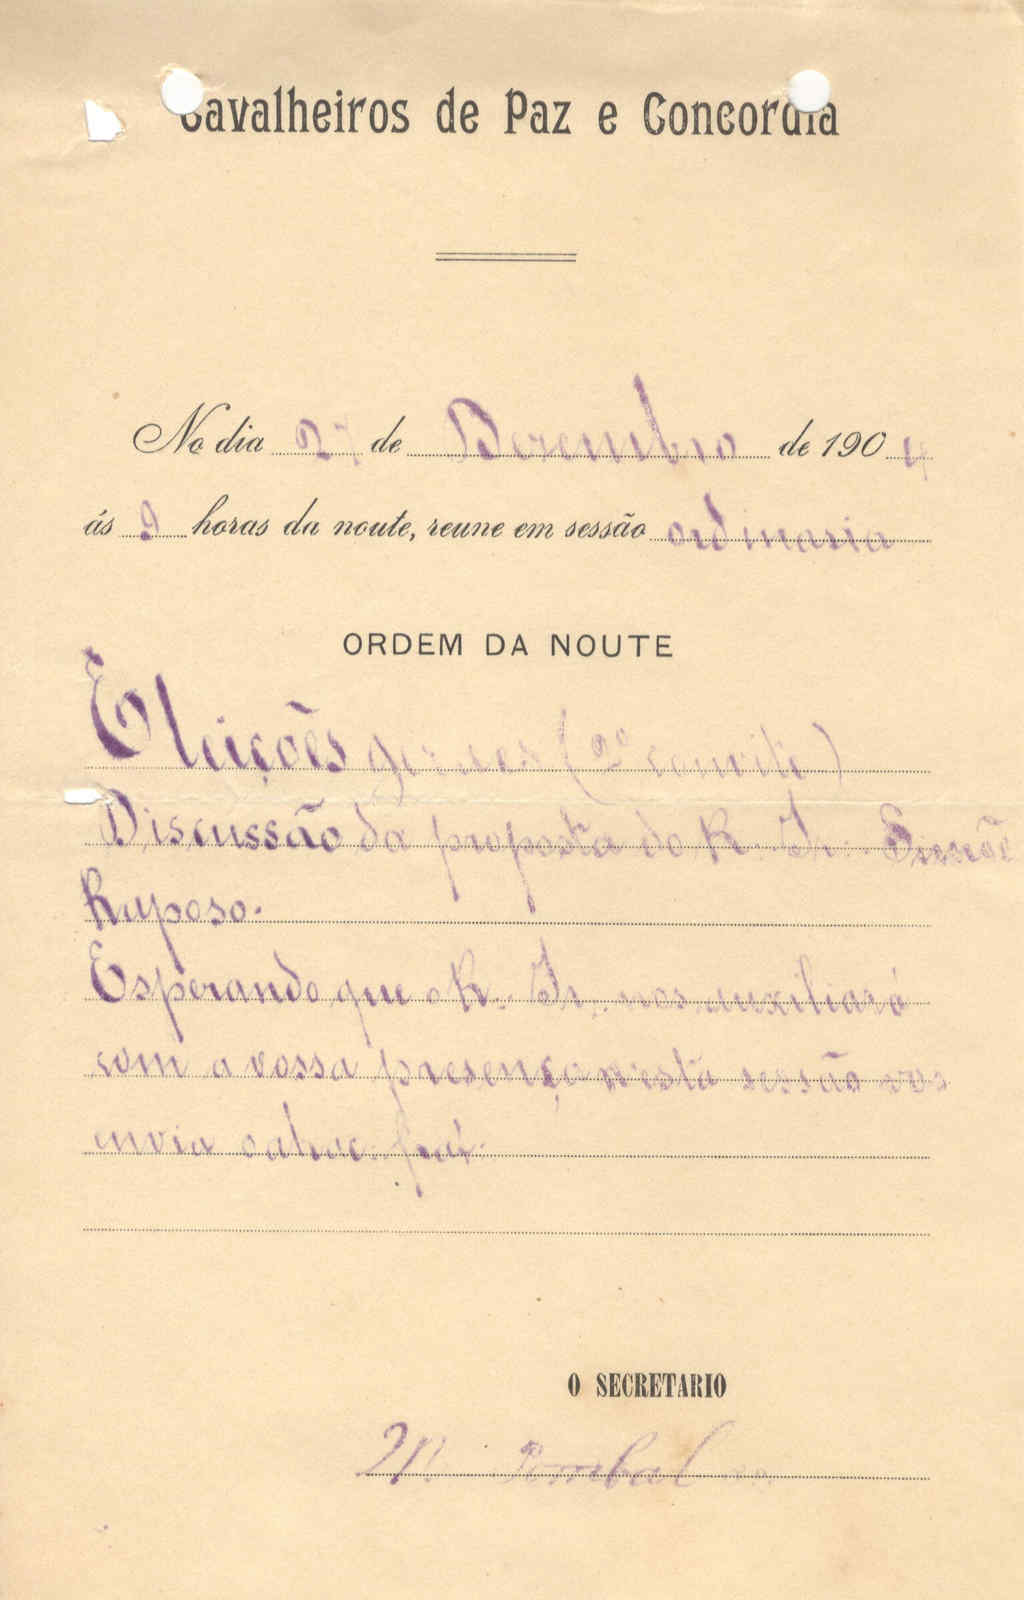 Cavalheiros de Paz e Concordia
No dia 27 de Dezembro de 1904
ás 9 horas da noute, reune em sessão ordinaria
ORDEM DA NOUTE
Eleições geraes (2º convite)
Discussão da proposta do R∴ Ir∴ Simão
Raposo.
Esperando que o R∴ Ir∴ nos auxiliará
com a vossa presença n'esta sessão vos
envia o abrc∴ frat∴
O SECRETARIO
M. Pombal